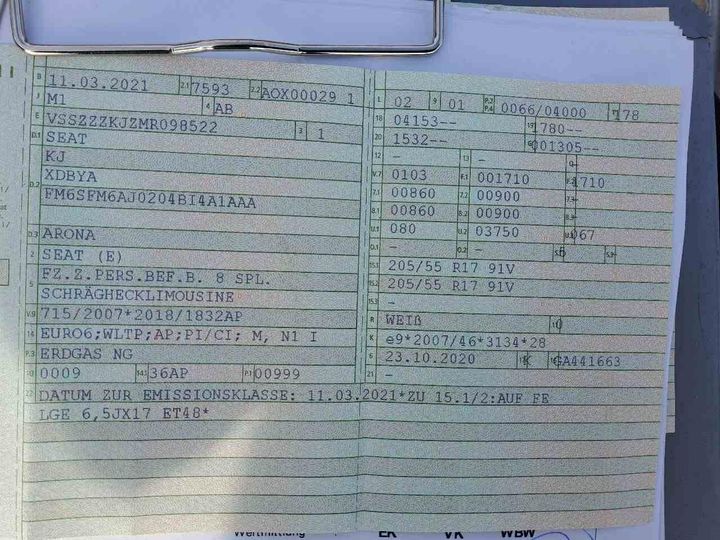 B 11.03.2021 2.1 7593 2.2 AOX00029 1
J M1 4 AB
E VSSZZZKJZMR098522 3 1
D.1 SEAT
KJ
D.2 XDBYA
FM6SFM6AJ0204BI4A1AAA
D.3 ARONA
2 SEAT (E)
5 FZ.Z.PERS.BEF.B. 8 SPL.
SCHRÄGHECKLIMOUSINE
V.9 715/2007*2018/1832AP
14 EURO6;WLTP;AP;PI/CI; M, N1 I
P.3 ERDGAS NG
10 0009 14.1 36AP P.1 00999
22 DATUM ZUR EMISSIONSKLASSE: 11.03.2021*ZU 15.1/2:AUF FE
LGE 6,5JX17 ET48*
L 02 9 01 P.2 P.4 0066/04000 T 178
18 04153-- 19 1780--
20 1532-- G 001305--
12 - 13 - Q -
V.7 0103 F.1 001710 F.2 1710
7.1 00860 7.2 00900 7.3 -
8.1 00860 8.2 00900 8.3 -
U.1 080 U.2 03750 U.3 067
O.1 - O.2 - S.1 5 S.2 -
15.1 205/55 R17 91V
15.2 205/55 R17 91V
15.3 -
R WEIß 11 0
K e9*2007/46*3134*28
6 23.10.2020 17 K 16 GA441663
21 -
Wertmittlung EK VK WBW